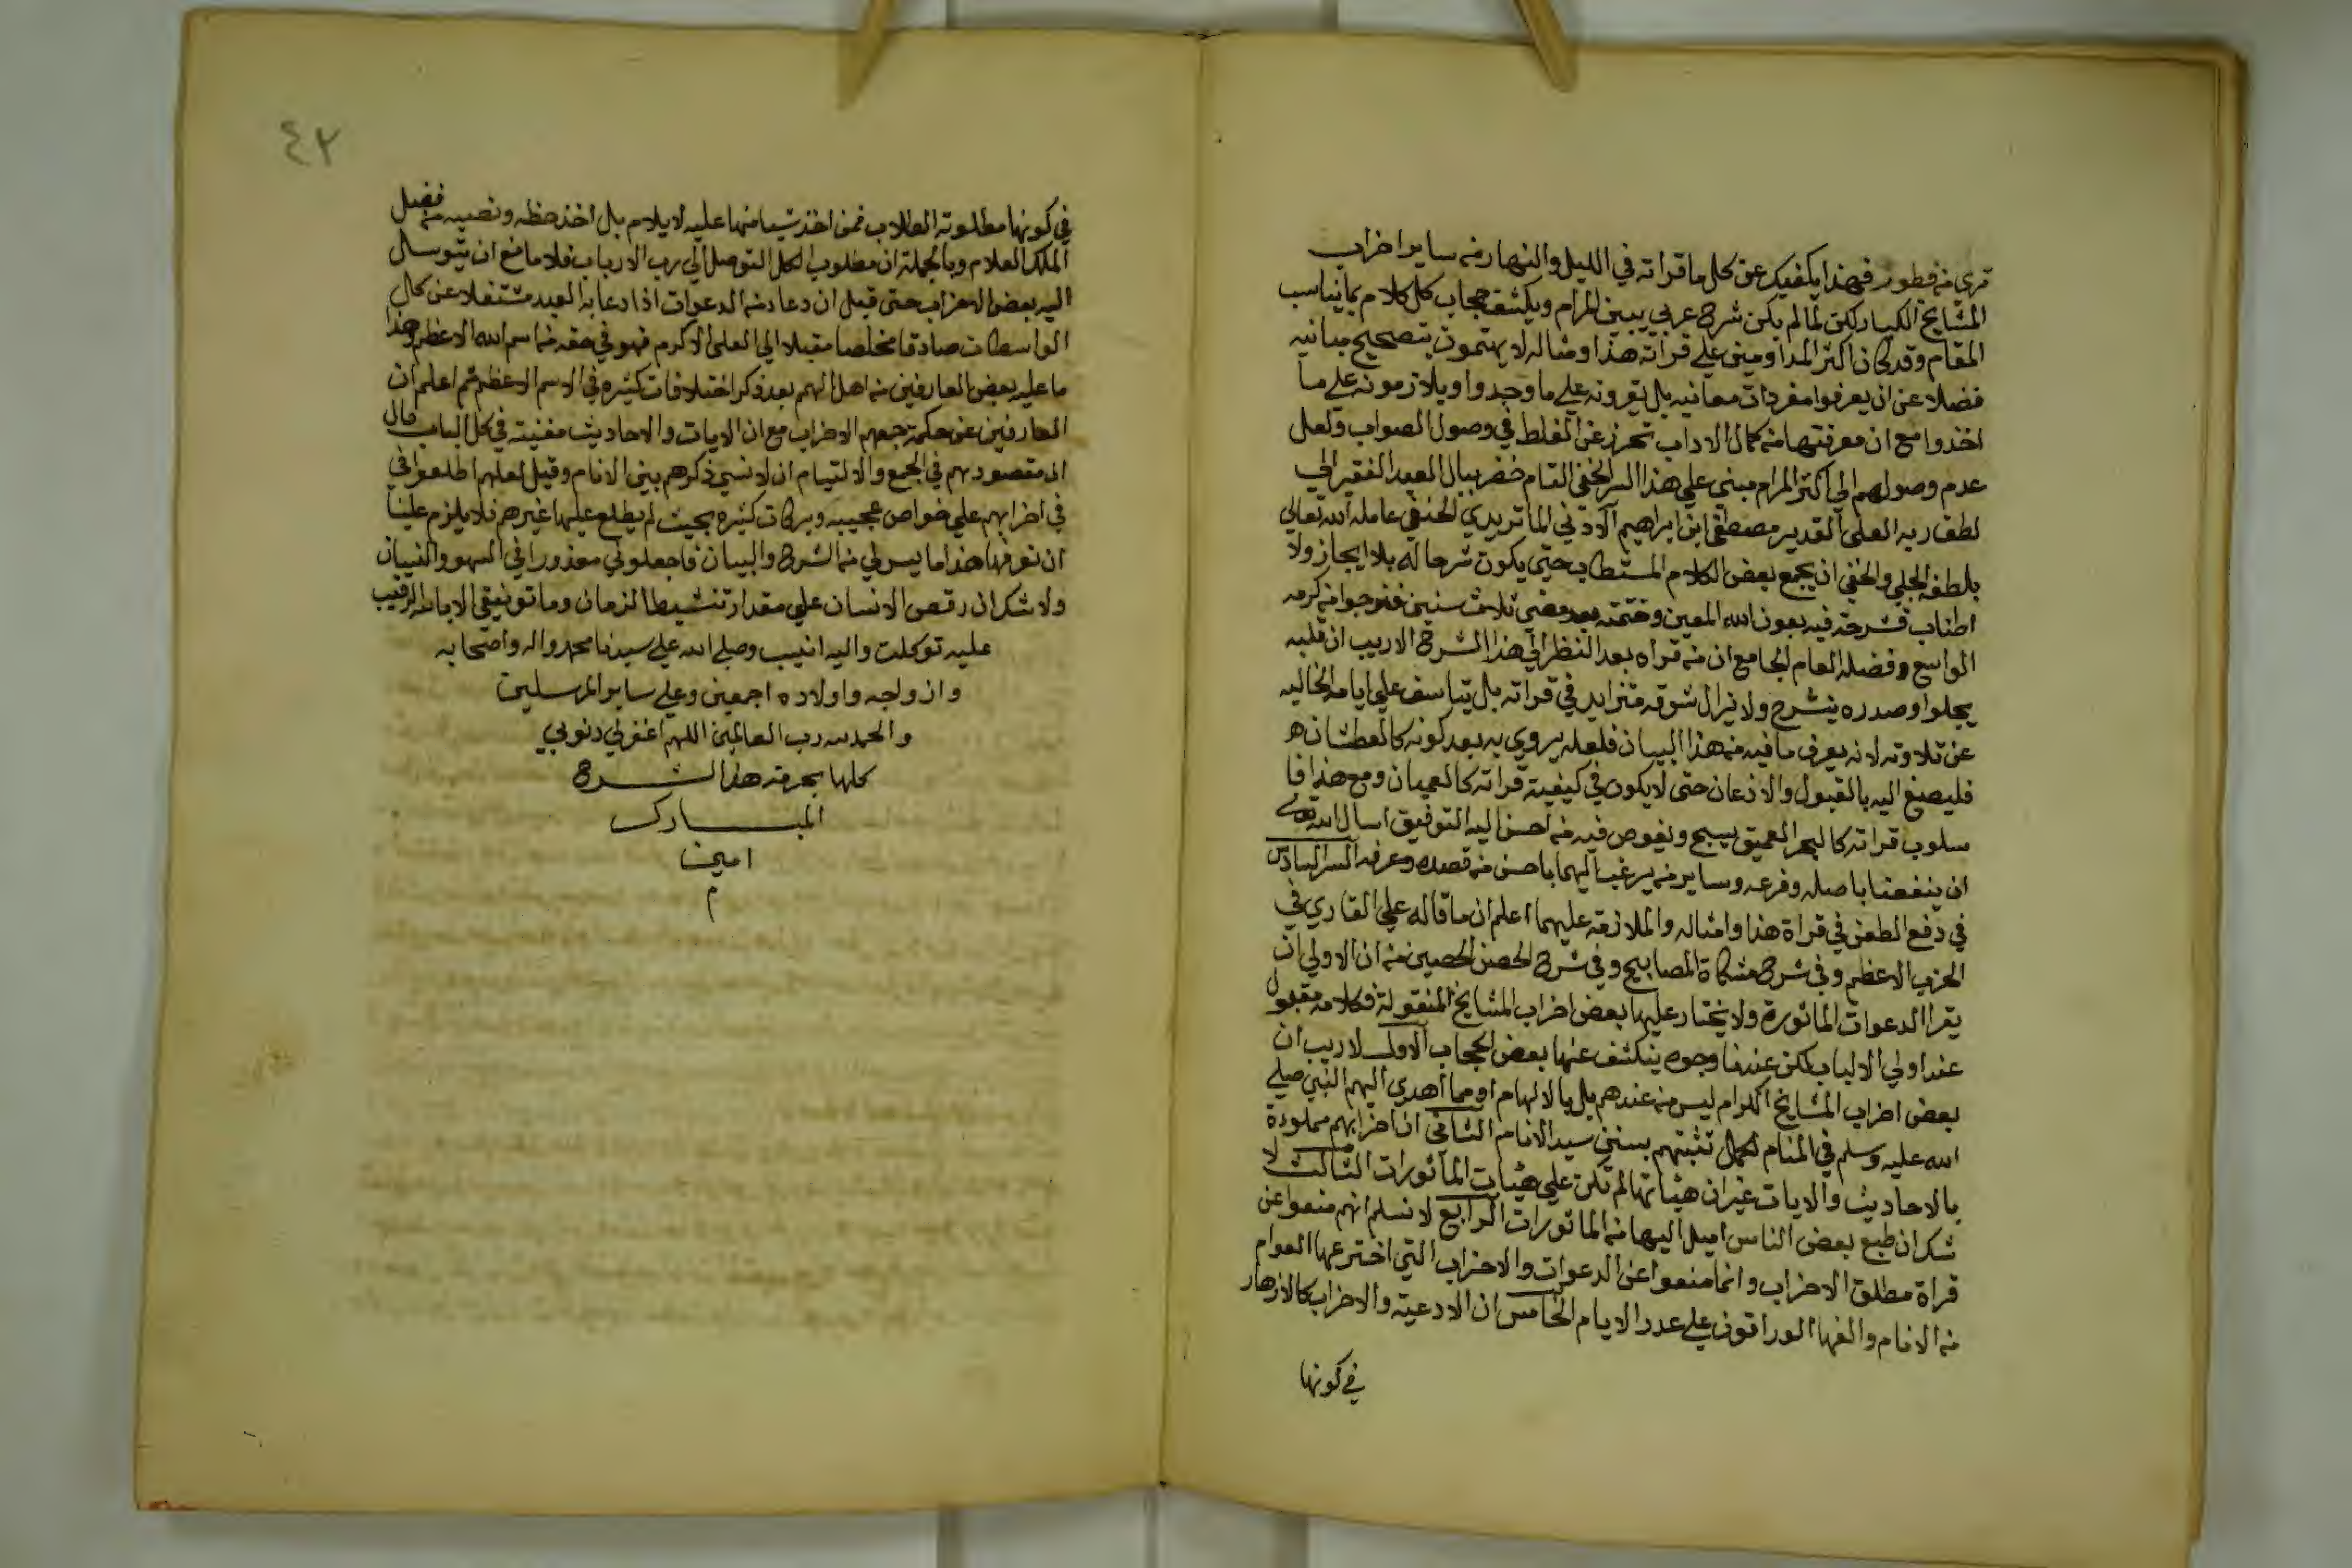 تري من فطور فهذا يكفيك عن كل ما قراته في الليل والنهار من ساير احزاب
المشايخ الكبار لكن لما لم يكن شرح عربي يبين المرام ويكشف حجاب كل كلام بما يناسب
المقام وقد كان اكثر المداومين علي قراته هذا ومثاله لا يهتمون بتصحيح مبانيه
فضلا عن ان يعرفوا مفردات معانيه بل يقرونه علي ما وجدوا ويلازمونه علي ما
اخذوا مع ان معرفتها من كمال الاداب تحرز عن الغلط في وصول الصواب ولعل
عدم وصولهم الي اكثر المرام مبني علي هذا السر الخفي التام خضر ببال العبد الفقير الي
لطف ربه العلي القدير مصطفي ابن ابراهيم الماتريدي الحنفي عامله الله تعالي
بلطفه الجلي والخفي ان يجمع بعض الكلام المستطاب حتي يكون شرحا له بلا ايجاز ولا
اطناب فشرحته فيه بعون الله المعين وختمته بعد مضي ثلاث سنين فنوجوا من كرمه
الواسع وفضله العام الجامع ان من قراه بعد النظر الي هذا الشرح الاريب ان قلبه
يجلوا وصدره ينشرح ولا يزال شوقه متزايد في قراته بل يتاسف علي ايامه الخاليه
عن تلاوته لانه يعرف ما فيه من هذا البيان فلعله يروي به بعد كونه كالعطشان
فليصغ اليه بالقبول والاذعان حتي لا يكون في كيفيته قراته كالعميان ومع هذا فا
سلوب قراته كالبحر العميق يسبح ويغوص فيه من احسن اليه التوفيق اسال الله تعالي
ان ينفعنا باصله وفرعه وساير من يرغب اليهما باحسن من قصده وعرفه السر السادس
في دفع الطعن في قراة هذا وامثاله والملازمة عليهما اعلم ان ما قاله علي القاري في
الحزب الاعظم وفي شرح مشكاة المصابيح وفي شرح الحصن الحصين من ان الاولي ان
يقرا الدعوات الماثورة ولا يختار عليها بعض احزاب المشايخ المنقولة فكلامه مقبول
عند اولي الالباب لكن عندنا وجوه ينكشف عنها بعض الحجاب الاول لا ريب ان
بعض احزاب المشايخ الكرام ليس من عندهم بل بالالهام او مما اهدي اليهم النبي صلي
الله عليه وسلم في المنام لكمال تثبتهم بسنن سيد الانام الثاني ان احزابهم مملودة
بالاحاديث والايات غير ان هيئاتها لم تكن علي هيئات الماثورات الثالث لا
شك ان طبع بعض الناس اميل اليها من الماثورات الرابع لا نسلم انهم منعوا عن
قراة مطلق الاحزاب وانما منعوا عن الدعوات والاحزاب التي اخترعها العوام
من الانام والفها الوراقون علي عدد الايام الخامس ان الادعية والاحزاب كالازهار
في كونها
٤٢
في كونها مطلوبة الطلاب فمن اخذ شيا منها عليه لا يلام بل اخذ حظه ونصيبه من فضل
الملك العلام وبالجملة ان مطلوب الكل التوصل الي رب الارباب فلا مانع ان يتوسل
اليه ببعض الاحزاب حتي قيل ان دعا من الدعوات اذا دعا به العبد مشتغلا عن كل
الواسطات صادقا مخلصا مقبلا الي العلي الاكرم فهو في حقه من اسم الله الاعظم وهذا
ما عليه بعض العارفين من اهل الهم بعد ذكر اختلافات كثيره في الاسم الاعظم ثم اعلم ان
العارفين عن حكمة جمعهم الاحزاب مع ان الايات والاحاديث مغنيته في كل الباب قال
ان مقصودهم في الجمع والالتيام ان لا نسي ذكرهم بين الانام وقيل لعلهم اطلعوا في
في احزابهم علي خواص عجيبه وبركات كثيره بحيث لم يطلع عليها غيرهم فلا يلزم علينا
ان نعرفها هذا ما يسر لي من الشرح والبيان فاجعلوني معذورا في السهو والنسيان
ولا شك ان رقص الانسان علي مقدار تنشيط الزمان وما توفيقي الا بالله الرقيب
عليه توكلت واليه انيب وصلي الله علي سيدنا محمد واله واصحابه
وازواجه واولاده اجمعين وعلي ساير المرسلين
والحمد لله رب العالمين اللهم اغفر لي ذنوبي
كلها بحرمة هذا الشرح
المبارك
امين
م